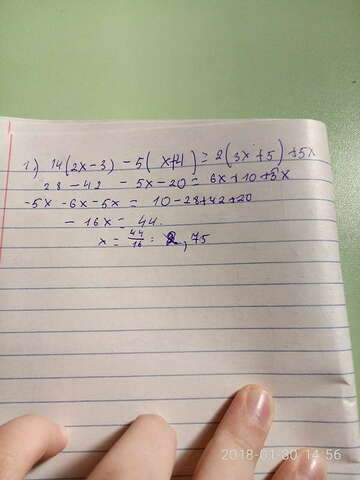 1) 14(2x-3) - 5(x+4) = 2(3x+5) +5x
28 - 42 - 5x - 20 = 6x + 10 + 5x
-5x - 6x - 5x = 10 - 28 + 42 + 20
- 16x = 44.
x = 44/16 = 2,75
2018-01-30 14:56